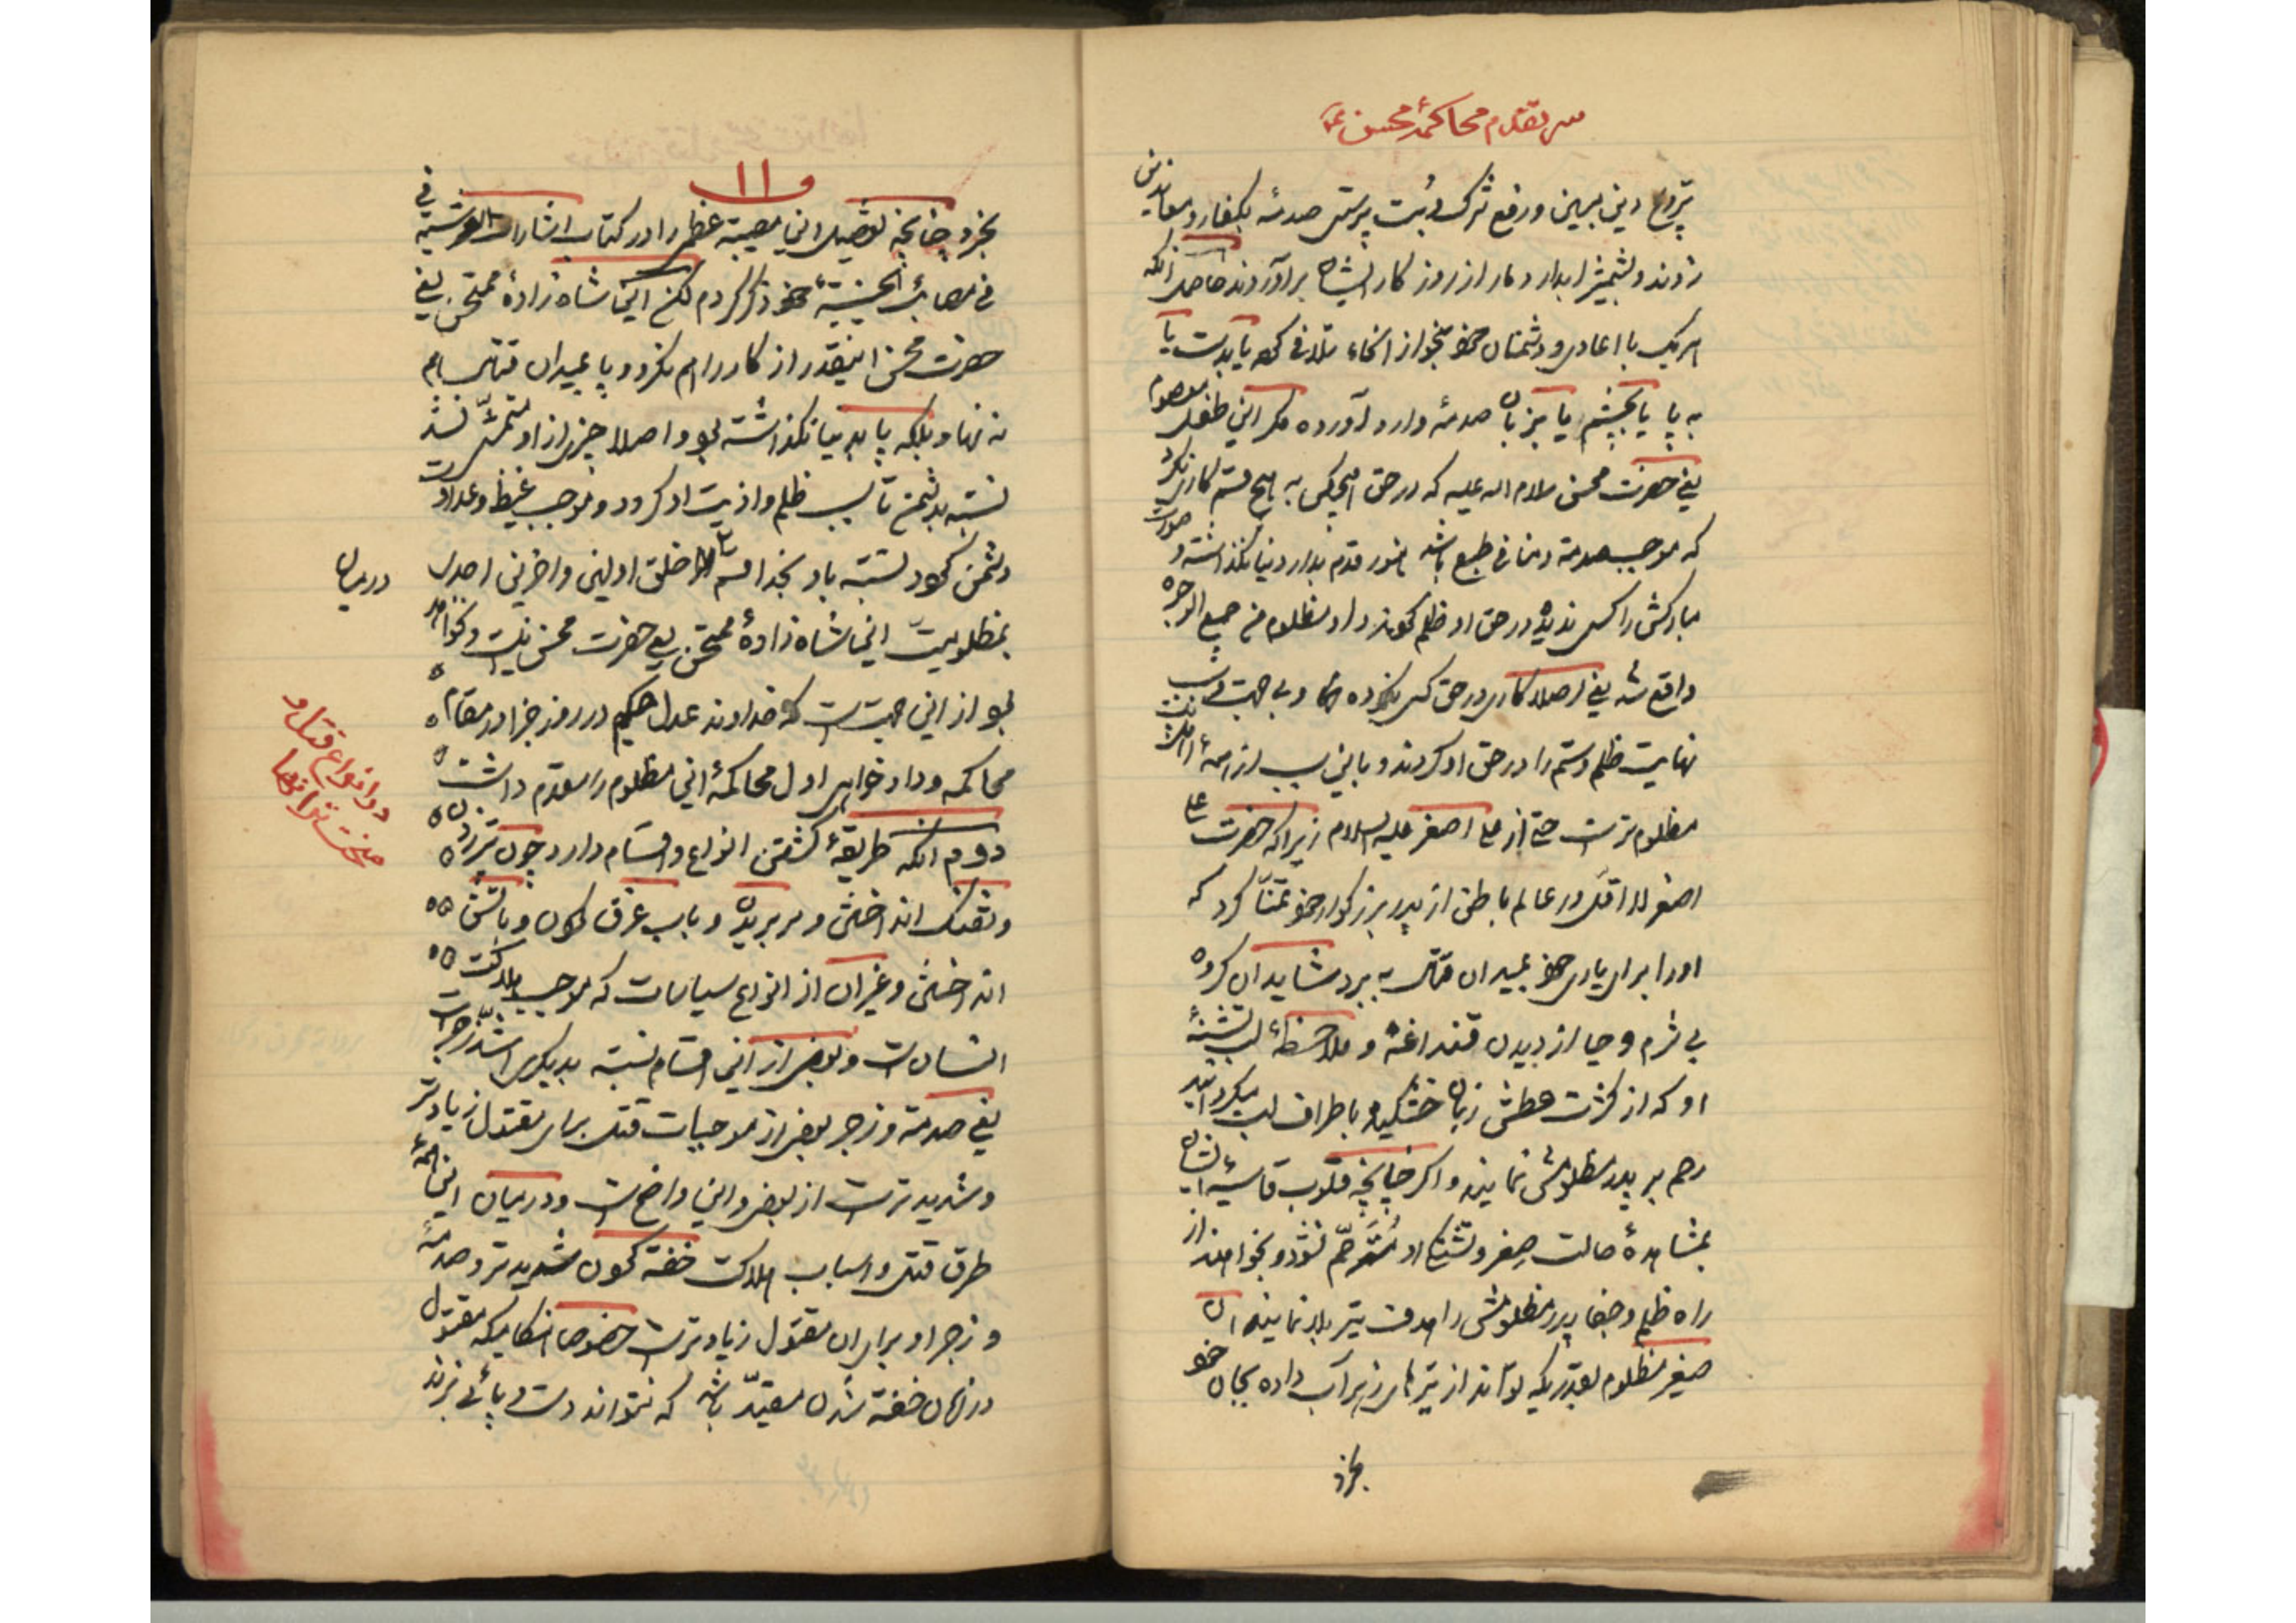 سر تقدم محاکمهٔ محسن ع
ترویج دین مبین و رفع شرک و بت پرستی صدمه بکفار و معاندین
زدند و بشمشیر ابدار دمار از روزگار ایشان برآوردند حاصل آنکه
هر یک با اعادی و دشمنان خود بنحوی از انحاء تلافی کرده یا بدست یا
به پا یا بچشم یا بزبان صدمهٔ وارد آورده مگر این طفل معصوم
یعنی حضرت محسن سلام الله علیه که در حق هیچکس به هیچ قسم کاری نکرد
که موجب صدمه و منافی طبع باشد هنوز قدم بدار دنیا نگذاشته و صورت
مبارکش را کسی ندیده در حق او ظلم کردند و او مظلوم من جمیع الوجوه
واقع شد یعنی اصلا کاری در حق کسی نکرده و بی جهت و بی سبب
نهایت ظلم و ستم را در حق او کردند و باین سبب از همهٔ
مظلوم تر است حتی از علی اصغر علیه السلام زیرا که حضرت علی
اصغر لا اقل در عالم باطن از پدر بزرگوار خود تمنا کرد که
او را برای یاری خود بمیدان قتال به برد شاید آن گروه
بی شرم و حیا از دیدن قنداغه و ملاحظهٔ لب تشنهٔ
او که از کثرت عطش زبان خشکیده باطراف لب میگردانید
رحم بر پدر مظلومش نمایند و اگر چنانچه قلوب قاسیهٔ ایشان
بمشاهدهٔ حالت صغر و تشنگی او مترحم نشود و بخواهند از
راه ظلم و جفا پدر مظلومش را هدف تیر بلا نمایند آن
صغیر مظلوم بقدریکه بتواند از تیرهای زهر آب داده بجان خود
بخرد
و ۱۱
بخرد چنانچه تفصیل این مصیبة عظمی را در کتاب اشارات فی
فی مصائب الحسینیة خود ذکر کردم لکن این شاه زادهٔ ممتحن یعنی
حضرت محسن اینقدر از کار را هم نکرد و پا بمیدان قتال هم
نه نهاد بلکه پا بدنیا نگذاشته بود و اصلا چیزی از او متمشی نشد
نسبة بدشمن تا سبب ظلم و اذیت او گردد و موجب غیظ و عداوت
دشمن گردد نسبة باو بخدا قسم تا خلق اولین و اخرین احدی
در میان
بمظلومیت این شاه زادهٔ ممتحن یعنی حضرت محسن نیست و نخواهد
بود از این جهت است که خداوند عدل حکیم در روز جزا در مقام
محاکمه و دادخواهی اول محاکمهٔ این مظلوم را مقدم داشت
دو انواع قتل و
سخت ترین آنها
دوم آنکه طریقهٔ کشتن انواع و اقسام دارد چون تیر زدن
و تفنک انداختن و سر بریدن و باب غرق کردن و باتش
انداختن و غیر آن از انواع سیاسات که موجب هلاکت
انسان است و بعضی از این اقسام نسبة بدیگری اشد زجرا است
یعنی صدمه و زجر بعضی از موجبات قتل برای مقتول زیادتر
و شدید تر است از بعضی و این واضح است و در میان این همهٔ
طرق قتل و اسباب هلاکت خفه کردن شدید تر و صدمهٔ
و زجر او برای مقتول زیاد تر است خصوصا هنگامیکه مقتول
در زمان خفه شدن مقید باشد که نتواند دست و پائی بزند